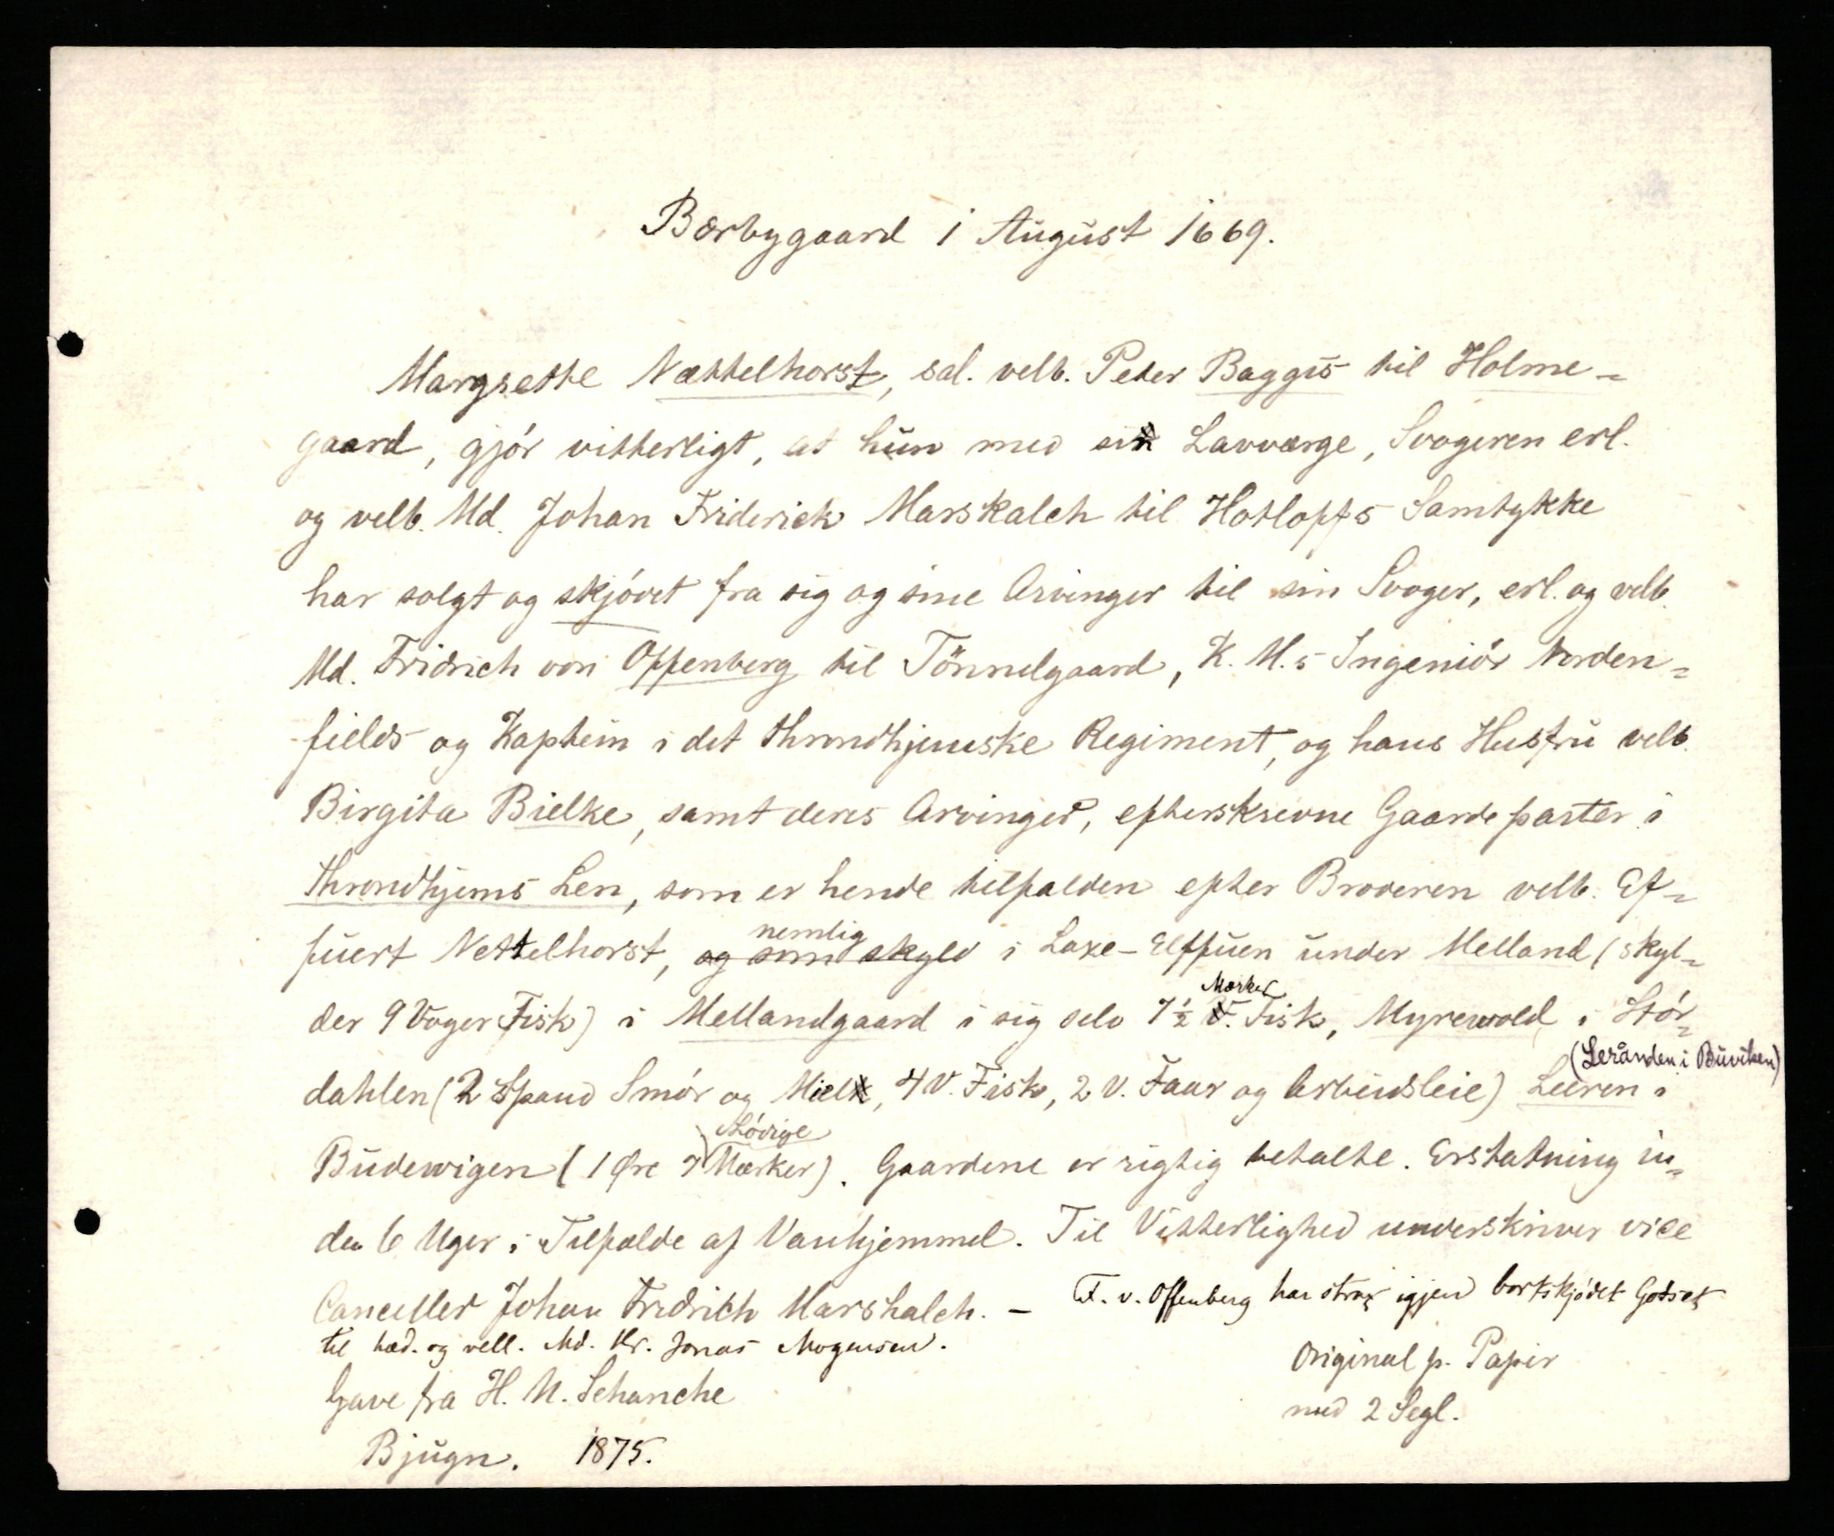 Børbygaard 1 August 1669.
Margrethe Nættelhorst, sal. velb. Peter Baggis til Holme-
gaard, gjór vitterligt, at hun med sin Lavværge, Svogeren erl.
og velb. Md. Johan Friderick Marskalch til Hotlopfs Samtykke
har solgt og skjódet fra sig og sine Arvinger til sin Svoger, erl. og velb.
Md. Fridrich von Offenberg til Tönnelgaard, K. M.s Ingeniór Norden-
fields og Kaptein i det throndhjemske Regiment, og hans Husfru velb.
Birgita Bielke, samt deres Arvinger, efterskrevne Gaardeparter i
Throndhjems Len, som er hende tilfalden efter Broderen velb. Ef-
nemlig
fuert Nettelhorst, og som skyld i Laxe-Elffuen under Melland (skyl-
Mærker
der 9 Voger Fisk) i Mellandgaard i sig selv 7½ V. Fisk, Myrewold i Stór-
(Leranden i Buviken)
dahlen (2 Spand Smór og Miel, 4 V. Fisk, 2 V. Faar og Arbeidsleie) Leeren i
Lódige
Budewigen (1 Øre 7 Mærker). Gaardene er rigtig betalte. Erstatning in-
den 6 Uger i Tilfælde af Vanhjemmel. Til Vitterlighed underskriver vice
Canceller Johan Fridrich Marshalch. – F. v. Offenberg har strax igjen bortskjódet Godset
til hæd. og vell. Md. Hr. Jonas Mogensen.
Original p. Papir
Gave fra H. N. Schanche
med 2 Segl.
Bjugn. 1875.